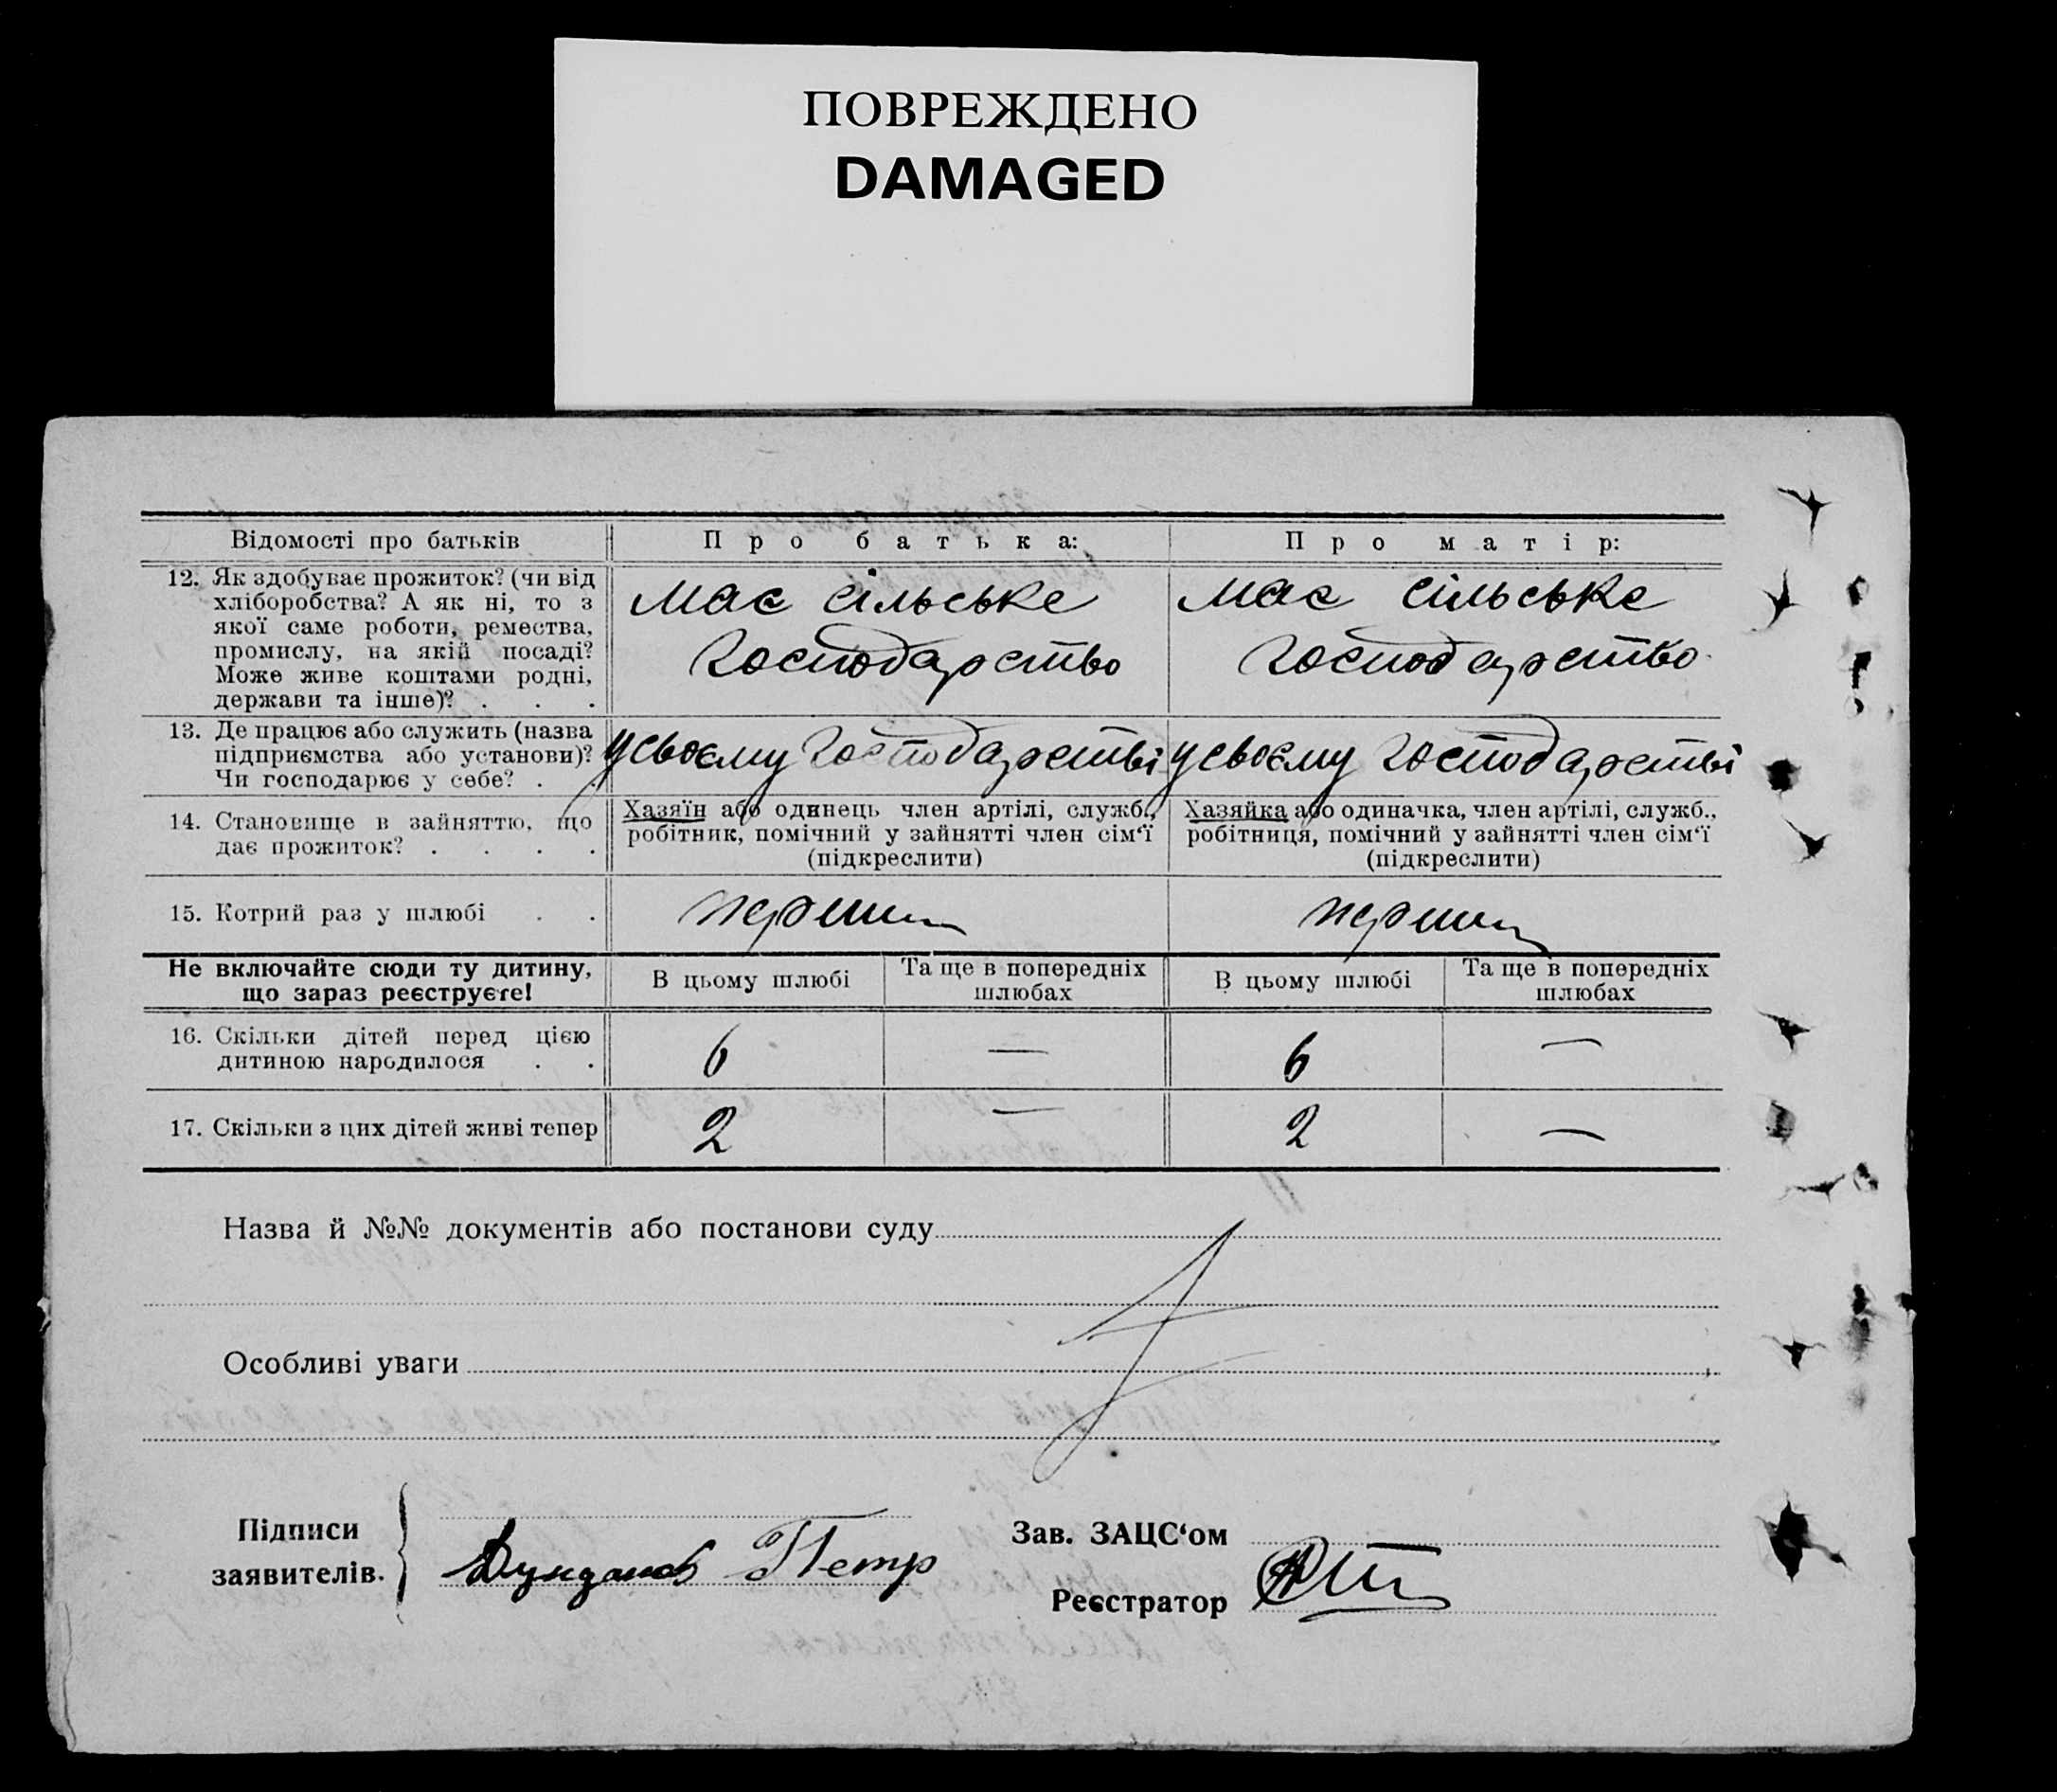 ПОВРЕЖДЕНО
DAMAGED
Відомості про батьків
Про батька:
Про матір:
12. Як здобуває прожиток? (чи від
хліборобства? А як ні, то з
якої саме роботи, ремества,
промислу, на якій посаді?
Може живе коштами родні,
держави та інше)? . . .
має сільське
господарство
має сільське
господарство
13. Де працює або служить (назва
підприємства або установи)?
Чи господарює у себе? . .
у своєму господарстві
у своєму господарстві
14. Становище в зайняттю, що
дає прожиток? . . . .
Хазяїн або одинець член артілі, служб.,
робітник, помічний у зайнятті член сім‘ї
(підкреслити)
Хазяйка або одиначка, член артілі, служб.,
робітниця, помічний у зайнятті член сім‘ї
(підкреслити)
15. Котрий раз у шлюбі . .
перший
перший
Не включайте сюди ту дитину,
що зараз реєструєте!
В цьому шлюбі
Та ще в попередніх
шлюбах
В цьому шлюбі
Та ще в попередніх
шлюбах
16. Скільки дітей перед цією
дитиною народилося . .
6 — 6 —
17. Скільки з цих дітей живі тепер
2 — 2 —
Назва й №№ документів або постанови суду
Особливі уваги
Підписи
заявителів.
Петр
Зав. ЗАЦС‘ом
Реєстратор